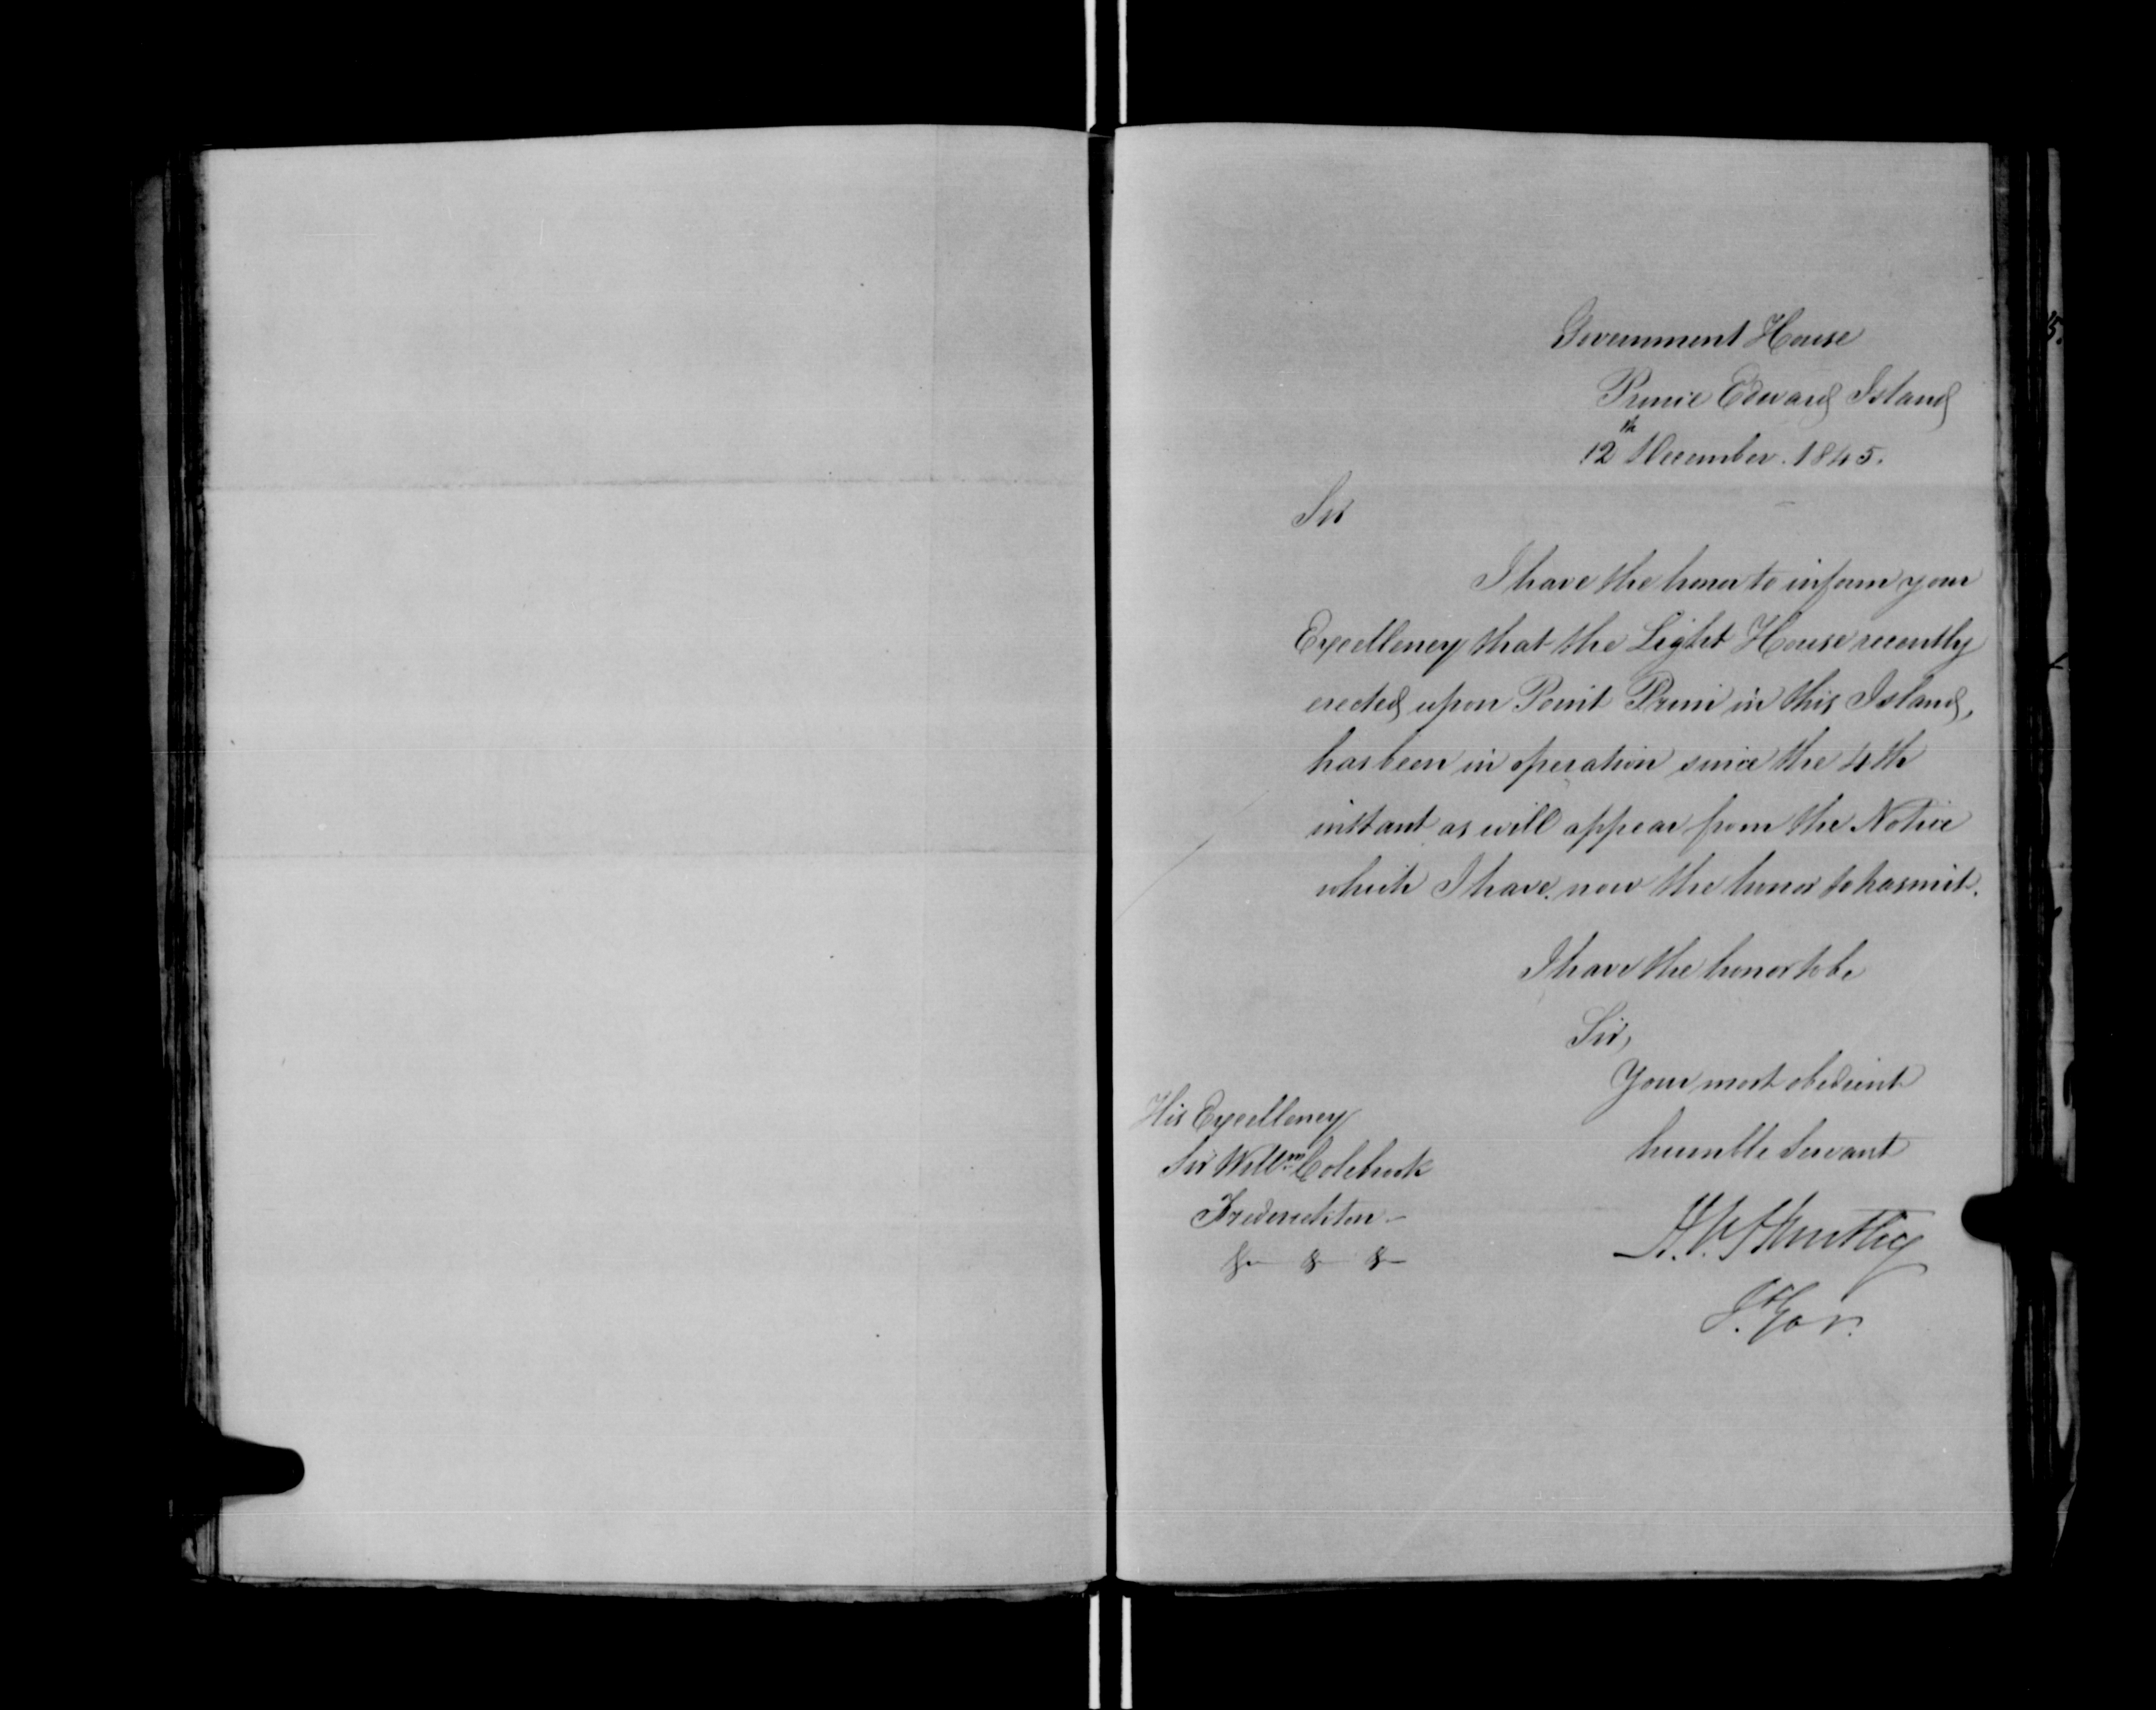 Government House
Prince Edward Island
12th December. 1845.
Sir
I have the honor to inform your
Excellency that the Light House recently
erected upon Point Prim in this Island,
has been in operation since the 4th
instant as will appear from the Notice
which I have now the honor to transmit.
I have the honor to be
Sir,
Your most obedient
humble Servant
H. V. Huntley
Lt. Gov.
His Excellency
Sir Willm Colebrook
Fredericton -
&c &c &c